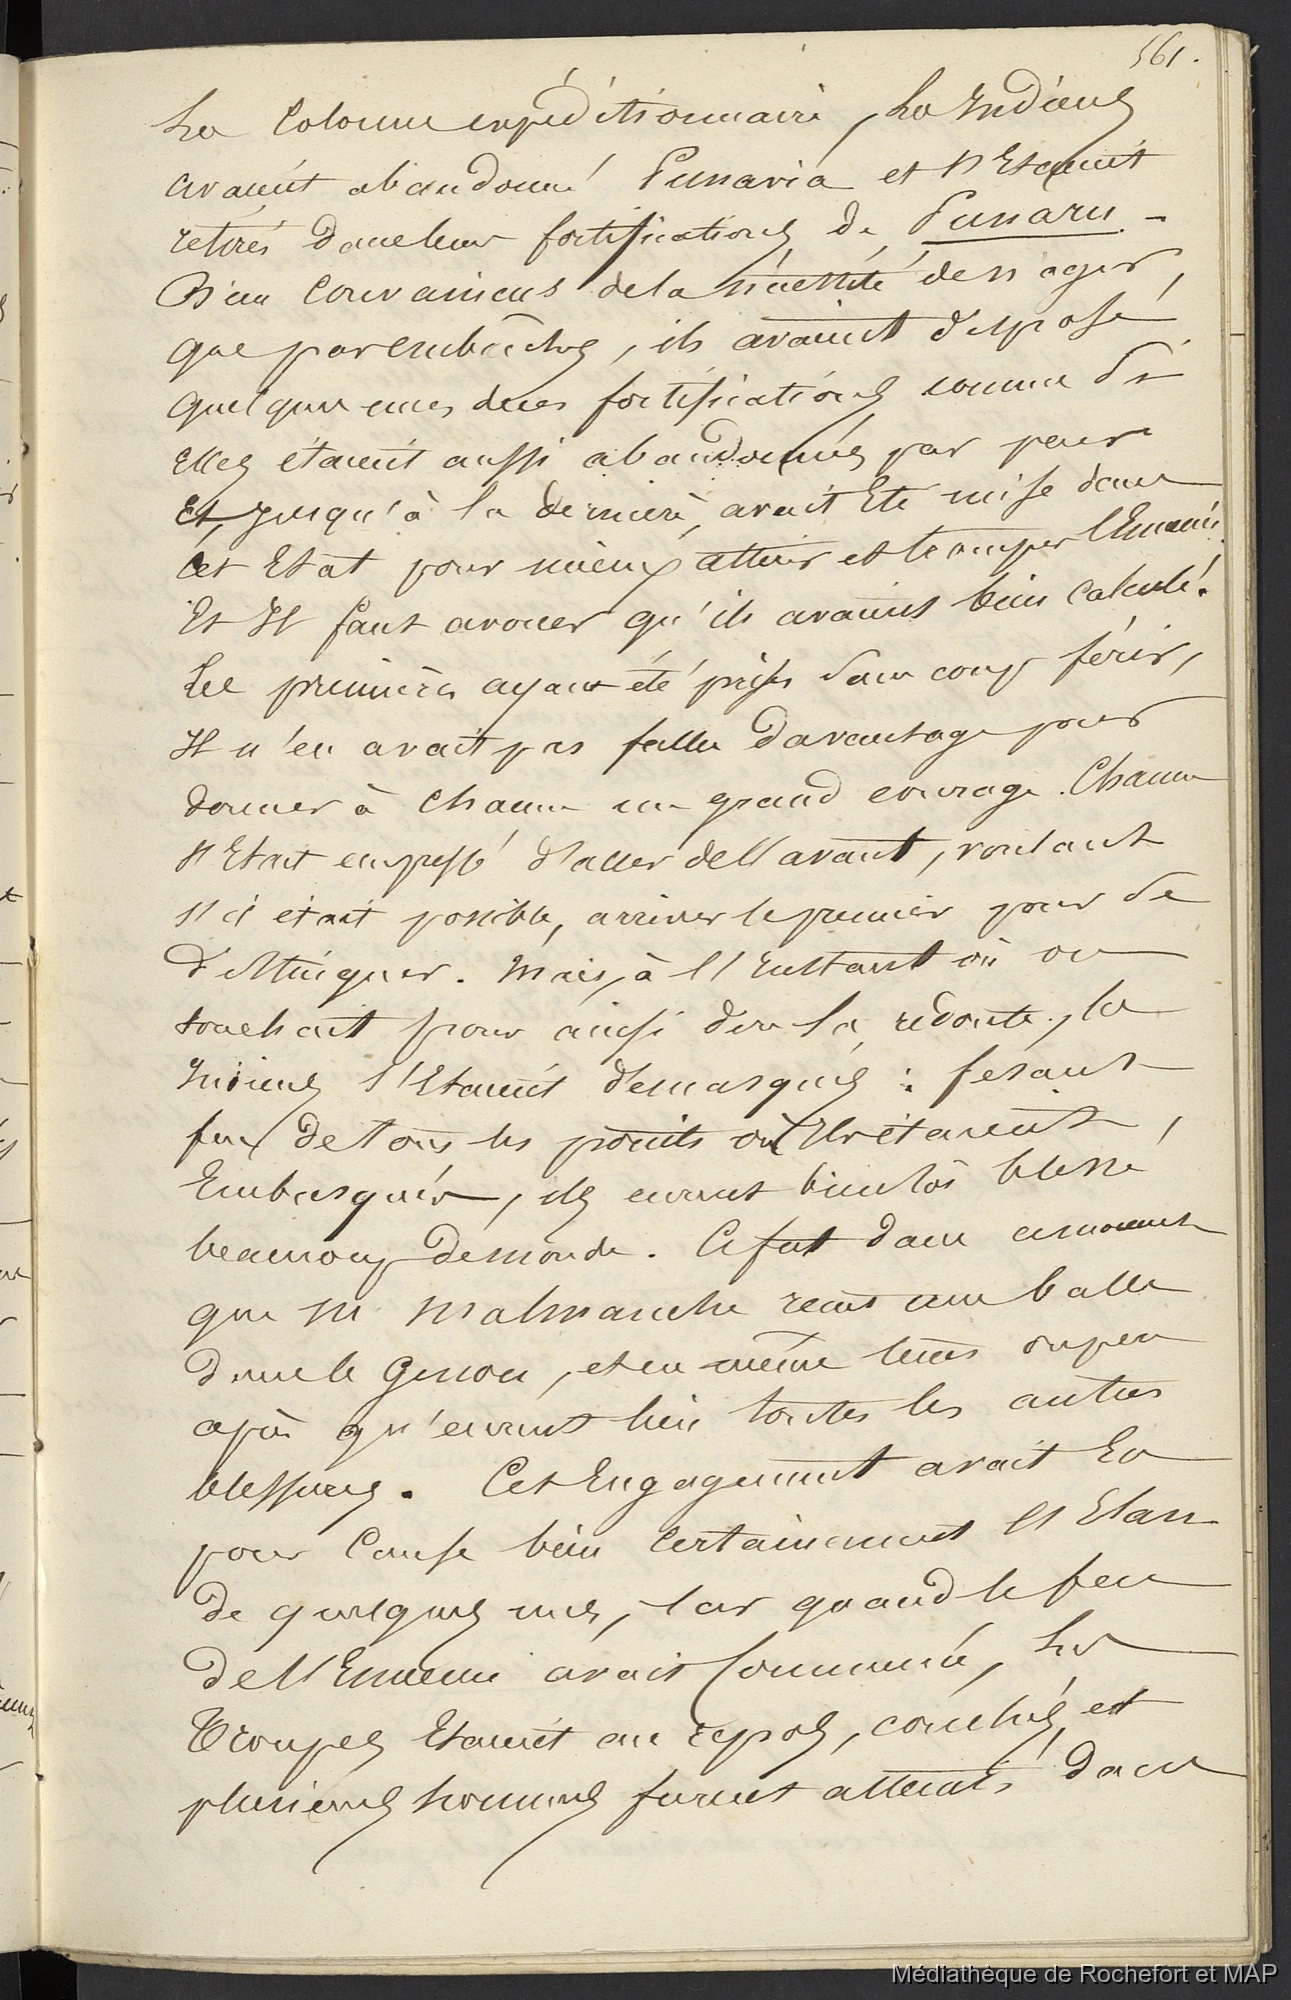 561.
La Colonne expéditionnaire, les Indiens
avaient abandonné Punavia et s'Etaient
retirés dans leur fortifications de Punaru -
Bien Convaincus de la nécessité de n'agir,
que par embûches, ils avaient disposé
quelques unes de ces fortifications comme si
elles étaient aussi abandonnés par peur
Et, jusqu'à la dernière, avait Eté mise dans
cet Etat pour mieux attirer et tromper l'Ennemi.
Et Il faut avouer qu'ils avaient bien calculé.
Les premières ayant été prises sans coup férir,
Il n'en avait pas fallu davantage pour
donner à chacun un grand courage. Chacun
s'Etait empressé d'aller de l'avant, voulant
s'il était possible, arriver le premier pour se
distinguer. Mais, à l'Instant où on
touchait pour ainsi dire la redoute, les
Indiens s'Etaient démasqués : fesant
feu de tous les points où Ils étaient,
Embusqués, ils eurent bientôt blessé
beaucoup de monde. Ce fut dans ce moment
que M Malmanche recut une balle
dans le Genou, et en même tems ou peu
après qu'eurent lieu toutes les autres
blessures. Cet Engagement avait Eu
pour Cause bien certainement l'Elan
de quelques uns, car quand le feu
de l'Ennemi avait Commencé, les
Troupes Etaient au repos, couchés et
plusieurs hommes furent atteints dans
Médiathèque de Rochefort et MAP